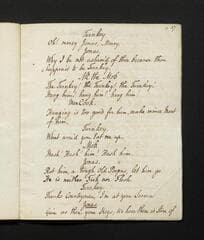 Turnkey
Oh! mercy Jonas, Mercy.
Jonas.
Why I be not ashamed of thee because thou
happenest to be Turnkey.
All the Mob
The Turnkey! the Turnkey! the Turnkey!
Hang him! hang him! hang him
Hanging is too good for him, make mince Meat
of him.
Turnkey.
What would you eat me up.
Mob.
Hash! Hash him! Hash him.
Jonas.
Rot him, a tough Old Rogue, let him go
He is neither Fish nor Flesh
Turnkey.
Thanks Countryman, I'm at your Service
Jonas
Give us then your Keys, we have them in Room of